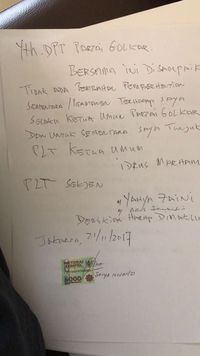 Yth. DPP Partai GOLKAR.
BERSAMA INI DISAMPAIK
TIDAK ADA PEMBAHASAN PEMBERHENTIAN
SEMENTARA / PERMANEN TERHADAP SAYA
SELAKU KETUA UMUM PARTAI GOLKAR
DAN UNTUK SEMENTARA SAYA TUNJUK
PLT KETUA UMUM
IDRUS MARHAM
PLT SEKJEN
YAHYA ZAINI
DEMIKIAN HARAP DIMAKLU
JAKARTA, 21/11/2017
6000
Setya Novanto